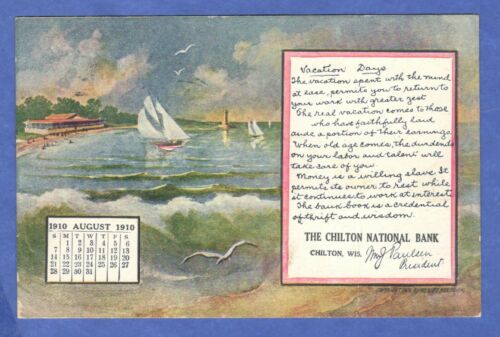 Vacation Days
The vacation spent with the mind
at ease, permits you to return to
your work with greater zest
The real vacation comes to those
who have faithfully laid
aside a portion of their earnings.
When old age comes the dividends
on your labor and talent will
take care of you
Money is a willing slave It
permits its owner to rest while
it continues to work at interest.
The bank book is a credential
of thrift and wisdom.
THE CHILTON NATIONAL BANK
CHILTON, WIS. Wm J Paulsen
President
1910 AUGUST 1910
S M T W T F S
1 2 3 4 5 6
7 8 9 10 11 12 13
14 15 16 17 18 19 20
21 22 23 24 25 26 27
28 29 30 31